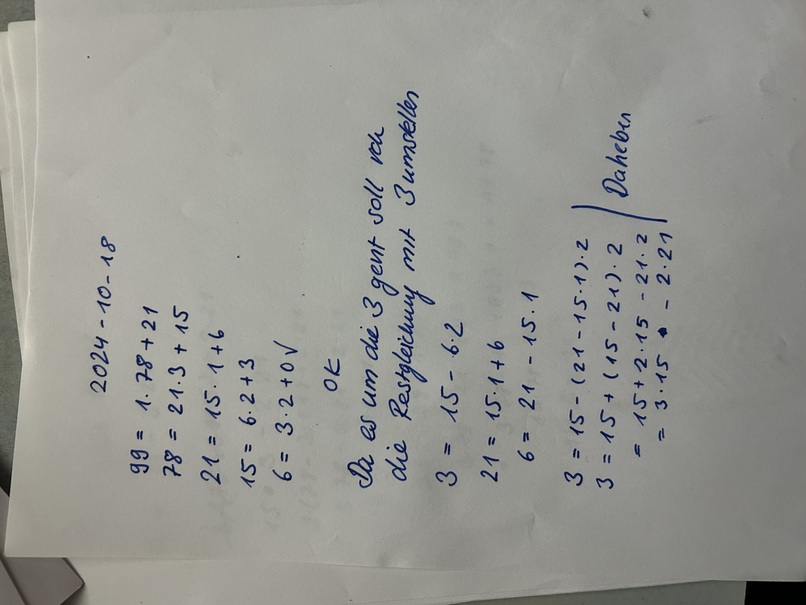 2024-10-18
99 = 1·78+21
78 = 21·3 + 15
21 = 15·1+6
15 = 6·2+3
6 = 3·2+0 ✓
OK
Da es um die 3 geht soll ich
die Restgleichung mit 3 umstellen
3 = 15 - 6·2
21 = 15·1+6
6 = 21 - 15·1
3 = 15-(21-15·1)·2
3 = 15 + (15-21)·2
= 15+2·15 -21·2
= 3·15 - 2·21